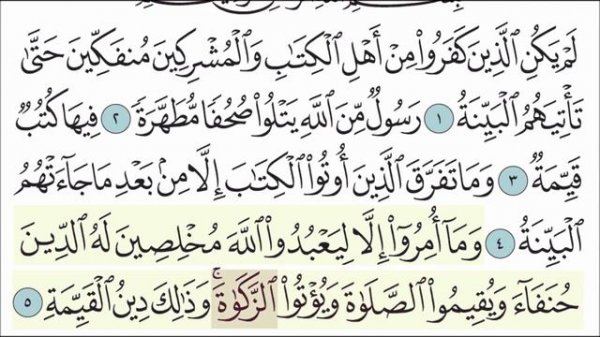 لَمْ يَكُنِ ٱلَّذِينَ كَفَرُوا۟ مِنْ أَهْلِ ٱلْكِتَـٰبِ وَٱلْمُشْرِكِينَ مُنفَكِّينَ حَتَّىٰ
تَأْتِيَهُمُ ٱلْبَيِّنَةُ ١ رَسُولٌ مِّنَ ٱللَّهِ يَتْلُوا۟ صُحُفًا مُّطَهَّرَةً ٢ فِيهَا كُتُبٌ
قَيِّمَةٌ ٣ وَمَا تَفَرَّقَ ٱلَّذِينَ أُوتُوا۟ ٱلْكِتَـٰبَ إِلَّا مِنۢ بَعْدِ مَا جَآءَتْهُمُ
ٱلْبَيِّنَةُ ٤ وَمَآ أُمِرُوٓا۟ إِلَّا لِيَعْبُدُوا۟ ٱللَّهَ مُخْلِصِينَ لَهُ ٱلدِّينَ
حُنَفَآءَ وَيُقِيمُوا۟ ٱلصَّلَوٰةَ وَيُؤْتُوا۟ ٱلزَّكَوٰةَ ۚ وَذَٰلِكَ دِينُ ٱلْقَيِّمَةِ ٥